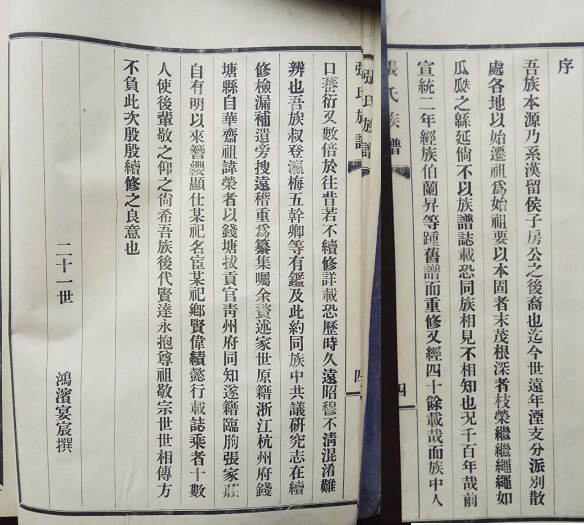 序
吾族本源乃系漢留侯子房公之後裔也迄今世遠年湮支分派別散
處各地以始遷祖爲始祖要以本固者末茂根深者枝榮繼繼繩繩如
瓜瓞之緜延倘不以族譜誌載恐同族相見不相知也況千百年哉前
宣統二年經族伯蘭昇等踵舊譜而重修又經四十餘載哉而族中人
張氏族譜
四
張氏族譜
四
口蕃衍叉數倍於往昔若不續修詳載恐歷時久遠昭穆不清混淆難
辨也吾族叔登瀛梅五幹卿等有鑑及此約同族中共議硏究志在續
修檢漏補遺旁搜遠稽重爲纂集囑余贅述家世原籍浙江杭州府錢
塘縣自華齋祖諱榮者以錢塘拔貢官青州府同知遂籍臨朐張家莊
自有明以來簪纓顯仕某祀名宦某祀鄉賢偉績懿行載誌乘者十數
人使後輩敬之仰之尙希吾族後代賢達永抱尊祖敬宗世世相傳方
不負此次殷殷續修之良意也
二十一世 鴻濱宴宸撰